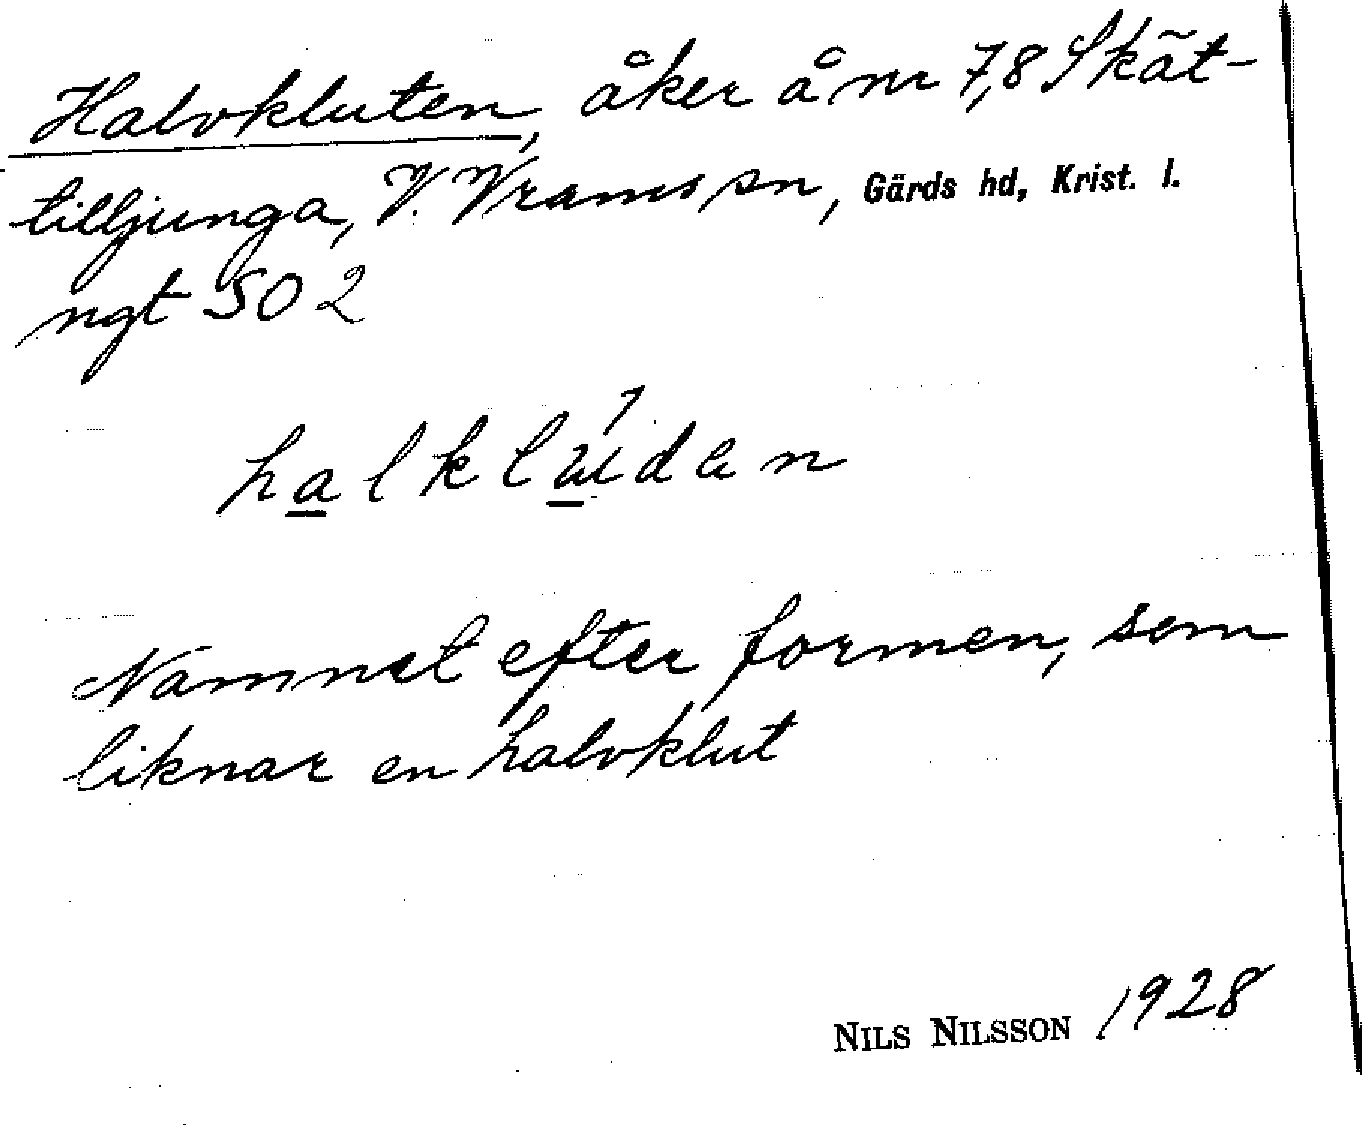 Halvkluten, åker å nr 7,8 Skät-
tilljunga, V. Vrams sn, Gärds hd, Krist. l.
ngt SO 2
halkluidan
Namnet efter formen, som
liknar en halvklut
NILS NILSSON 1928